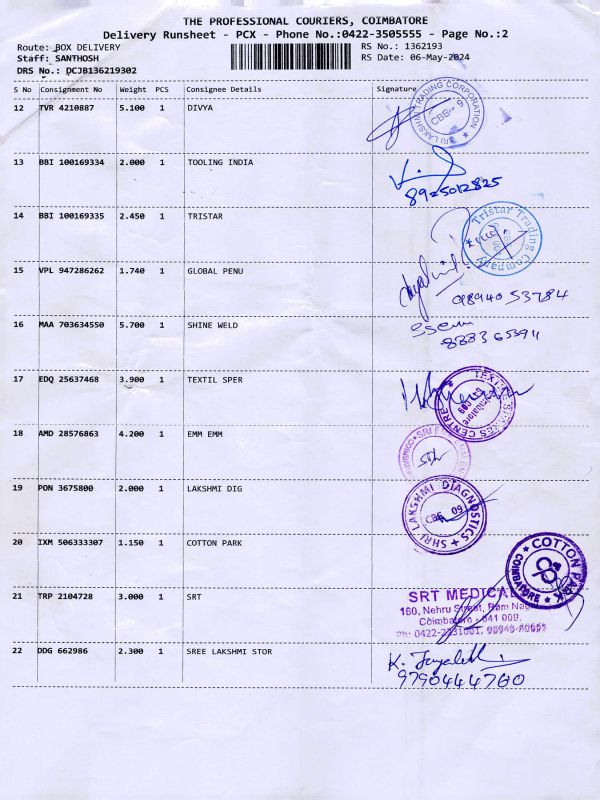 THE PROFESSIONAL COURIERS, COIMBATORE
Delivery Runsheet - PCX - Phone No.:0422-3505555 - Page No.:2
Route: BOX DELIVERY RS No.: 1362193
Staff: SANTHOSH RS Date: 06-May-2024
DRS No.: DCJB136219302
S No Consignment No Weight PCS Consignee Details Signature
12 TVR 4210887 5.100 1 DIVYA
SRI LAKSHMI TRADING CORPORATION
CBE - 9
13 BBI 100169334 2.000 1 TOOLING INDIA
8925012825
14 BBI 100169335 2.450 1 TRISTAR
Tristar Trading Company
15 VPL 947286262 1.740 1 GLOBAL PENU
9894053784
16 MAA 703634550 5.700 1 SHINE WELD
17 EDQ 25637468 3.900 1 TEXTIL SPER
TEXTILE SPARES CENTRE
18 AMD 28576863 4.200 1 EMM EMM
19 PON 3675800 2.000 1 LAKSHMI DIG
SHRI LAKSHMI DIAGNOSTICS
CBE 09
20 IXM 506333307 1.150 1 COTTON PARK
COTTON PARK
COIMBATORE
21 TRP 2104728 3.000 1 SRT
SRT MEDICAL
160, Nehru Street, Ram Nagar
Coimbatore - 641 009.
22 DDG 662986 2.300 1 SREE LAKSHMI STOR
9790444760